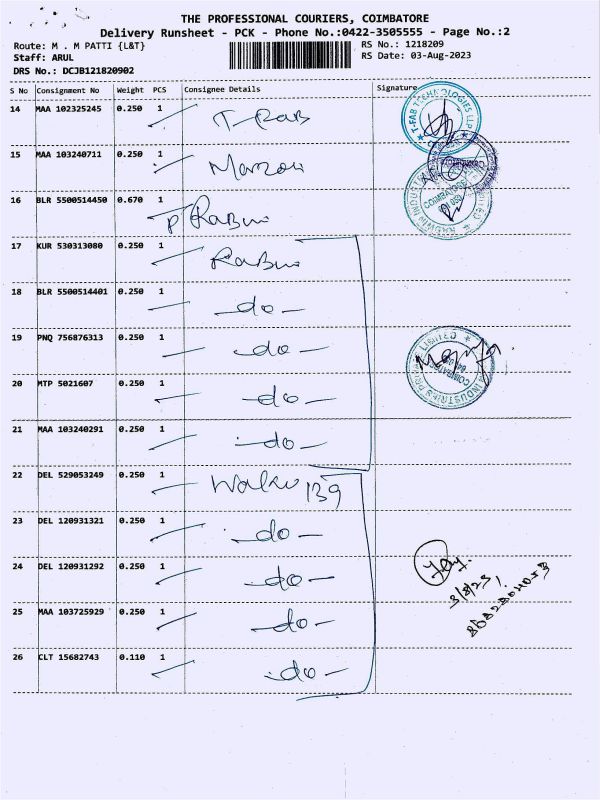 THE PROFESSIONAL COURIERS, COIMBATORE
Delivery Runsheet - PCK - Phone No.:0422-3505555 - Page No.:2
Route: M . M PATTI {L&T}
RS No.: 1218209
Staff: ARUL
RS Date: 03-Aug-2023
DRS No.: DCJB121820902
S No Consignment No Weight PCS Consignee Details Signature
14 MAA 102325245 0.250 1 T-FAB
15 MAA 103240711 0.250 1
16 BLR 5500514450 0.670 1
17 KUR 530313080 0.250 1
18 BLR 5500514401 0.250 1 -do-
19 PNQ 756876313 0.250 1 -do-
20 MTP 5021607 0.250 1 -do-
21 MAA 103240291 0.250 1 -do-
22 DEL 529053249 0.250 1 139
23 DEL 120931321 0.250 1 -do-
24 DEL 120931292 0.250 1 -do-
25 MAA 103725929 0.250 1 -do-
26 CLT 15682743 0.110 1 -do-
T-FAB TECHNOLOGIES LLP
COIMBATORE
COIMBATORE
3/8/23